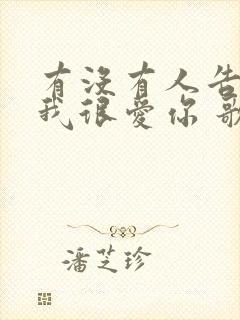 有没有人告
我很爱你 歌
潘芝珍